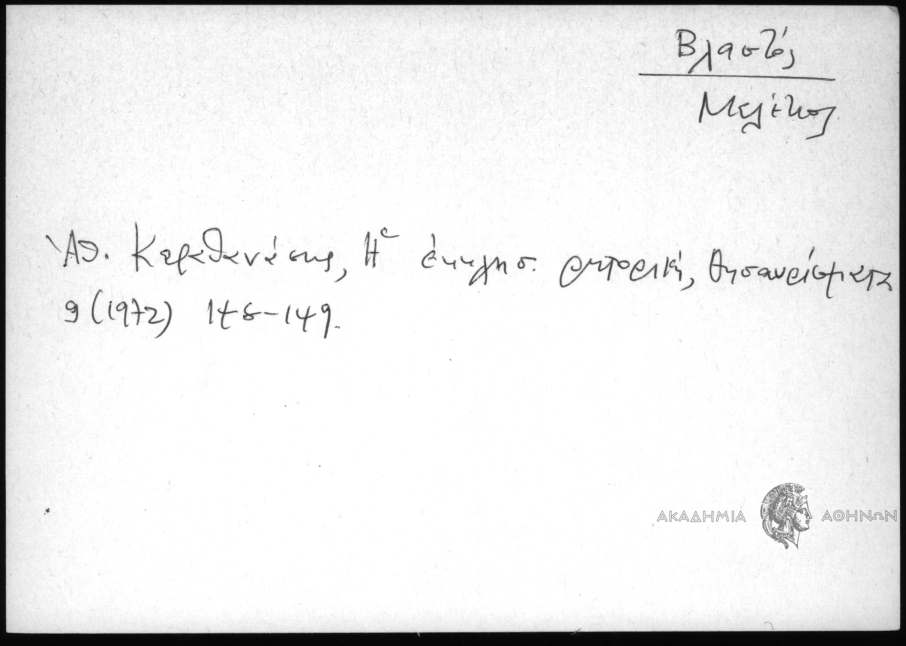 Βλαστός
Μελέτιος
Ἀθ. Καραθανάσης, Ἡ ἐκκλησ. ρητορική, Θησαυρίσματα
9 (1972) 148-149.
ΑΚΑΔΗΜΙΑ ΑΘΗΝΩΝ